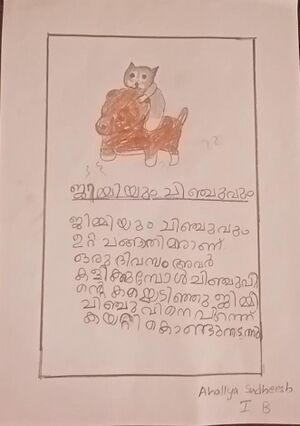 ജിമ്മിയും ചിഞ്ചുവും
ജിമ്മിയും ചിഞ്ചുവും
ഉറ്റ ചങ്ങാതിമാരാണ്.
ഒരു ദിവസം അവർ
കളിക്കുമ്പോൾ ചിഞ്ചുവി
ന്റെ കാലൊടിഞ്ഞു. ജിമ്മി
ചിഞ്ചുവിനെ പുറത്ത്
കയറ്റി കൊണ്ടുനടന്നു.
Ahallya Sudheesh
I B